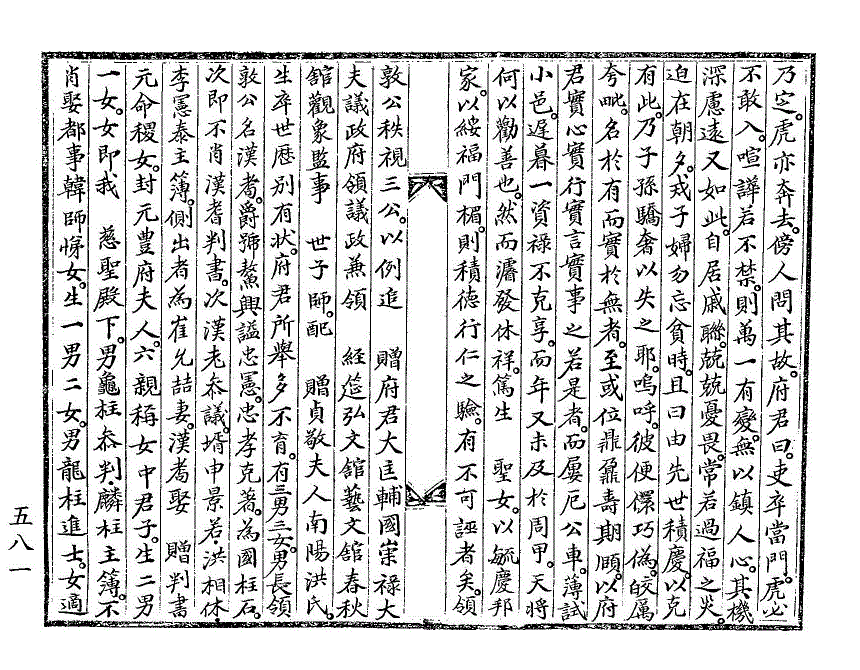 乃定。虎亦奔去。傍人問其故。府君曰。吏卒當門。虎必
不敢入。喧譁若不禁。則萬一有變。無以鎭人心。其機
深慮遠又如此。自居戚聯。兢兢憂畏。常若過福之災。
迫在朝夕。戒子婦勿忘貧時。且曰由先世積慶。以克
有此。乃子孫驕奢以失之耶。嗚呼。彼便儇巧僞。皎厲
夸毗。名於有而實於無者。至或位鼎鼐壽期頤。以府
君實心實行實言實事之若是者。而屢厄公車。薄試
小邑。遲暮一資祿不克享。而年又未及於周甲。天將
何以勸善也。然而濬發休祥。篤生 聖女。以毓慶邦
家。以綏福門楣。則積德行仁之驗。有不可誣者矣。領
敦公秩視三公。以例追 贈府君大匡輔國崇祿大
夫議政府領議政兼領 經筵弘文館藝文館春秋
館觀象監事 世子師。配 贈貞敬夫人南陽洪氏。
生卒世歷別有狀。府君所擧多不育。有三男三女。男長領
敦公名漢耆。爵號鰲興諡忠憲。忠孝克著。爲國柱石。
次卽不肖漢耆判書。次漢老參議。壻申景若·洪相休·
李憲泰主簿。側出者爲崔允喆妻。漢耇娶 贈判書
元命稷女。封元豊府夫人。六親稱女中君子。生二男
一女。女卽我 慈聖殿下。男龜柱參判·麟柱主簿。不
肖娶都事韓師悌女。生一男二女。男龍柱進士。女適
五八一